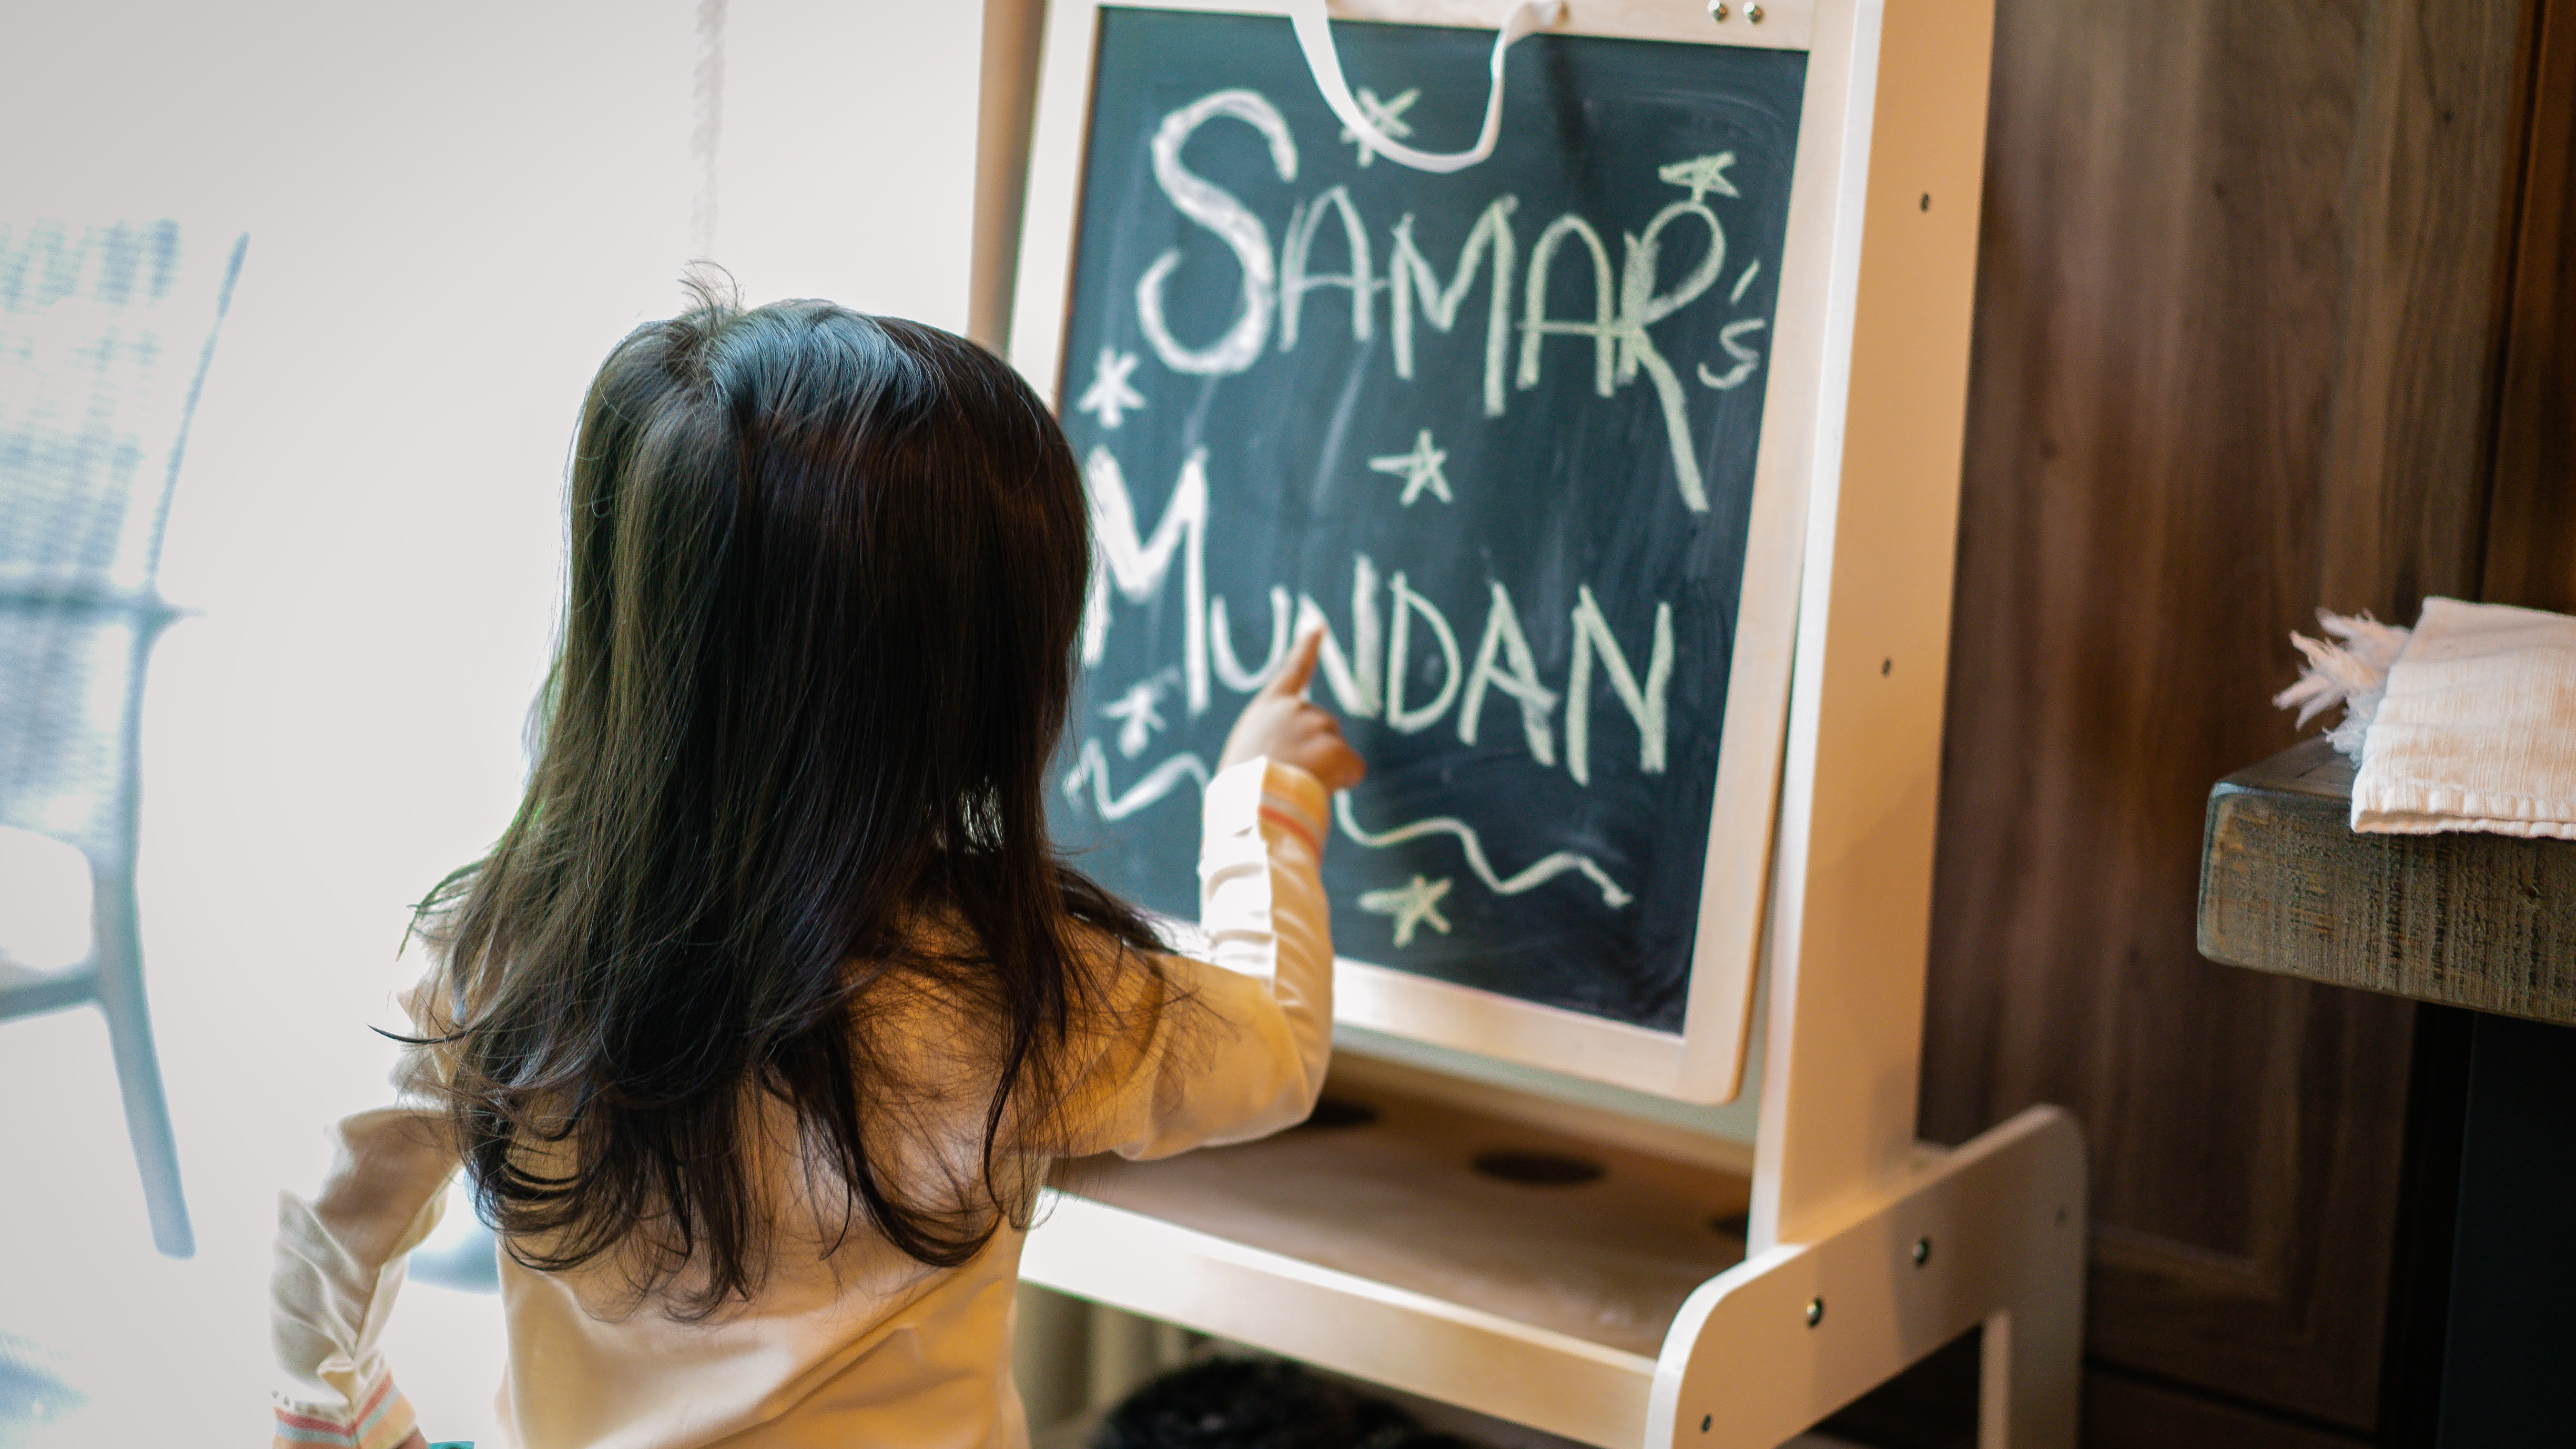 SAMAR's
MUNDAN